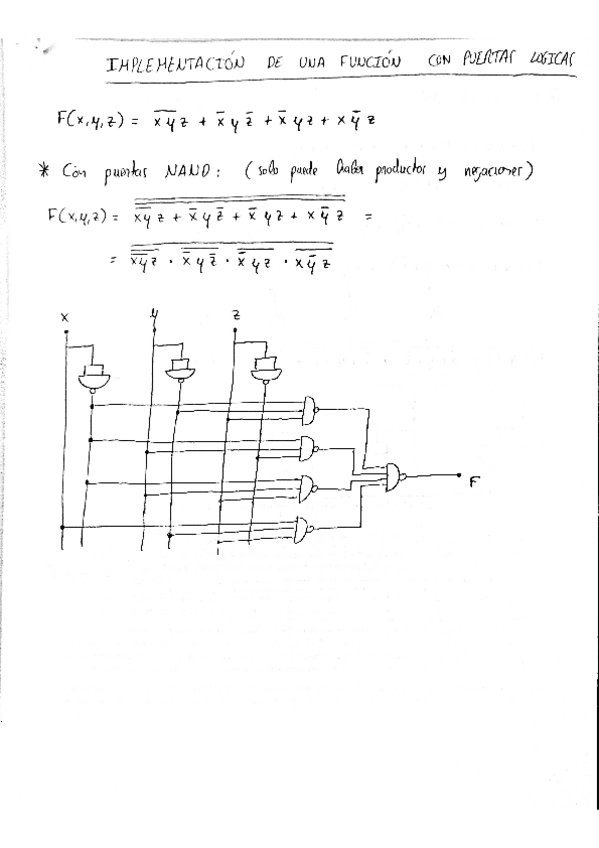 IMPLEMENTACIÓN DE UNA FUNCIÓN CON PUERTAS LOGICAS
F(x,y,z) = x̅ y̅ z + x̅ y z̅ + x̅ y z + x y̅ z
* Con puertas NAND: (solo puede haber productos y negaciones)
F(x,y,z) = x̅ y̅ z + x̅ y z̅ + x̅ y z + x y̅ z =
= x̅ y̅ z · x̅ y z̅ · x̅ y z · x y̅ z
x y z
F